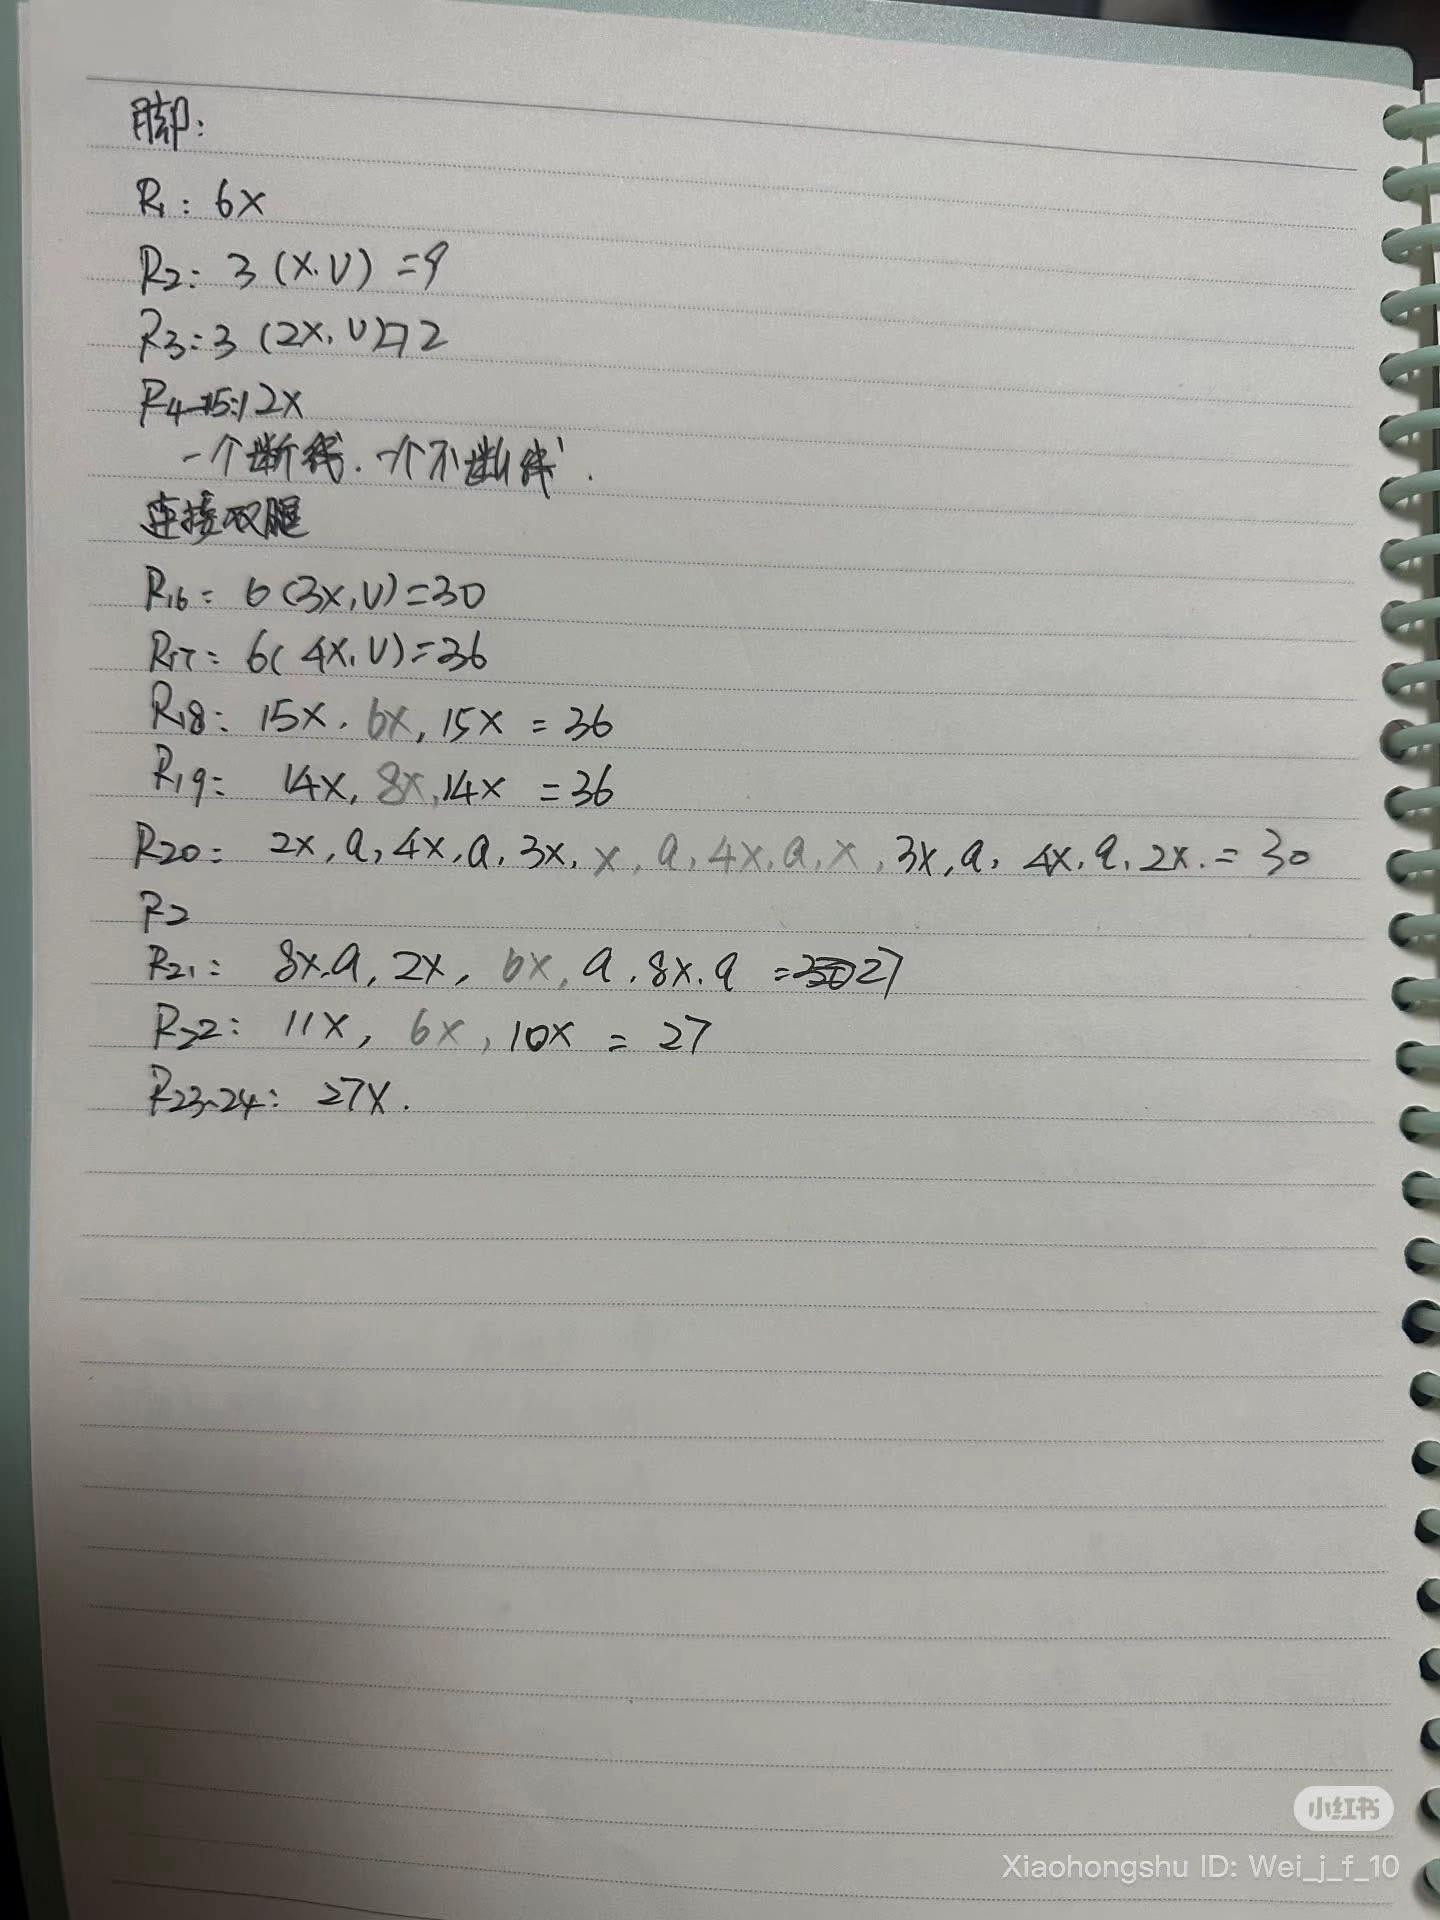 脚:
R1: 6X
R2: 3(X.V)=9
R3: 3(2X,V)=12
R4-15:12X
一个断线.一个不断线.
连接双腿
R16: 6(3X,V)=30
R17: 6(4X,V)=36
R18: 15X.6X,15X=36
R19: 14X,8X,14X=36
R20: 2X,A,4X,A,3X,X,A,4X,A,X,3X,A,4X,A,2X.=30
R2
R21: 8X.A,2X,6X,A.8X.A=27
R22: 11X,6X,10X=27
R23-24: 27X.
小红书
Xiaohongshu ID: Wei_j_f_10